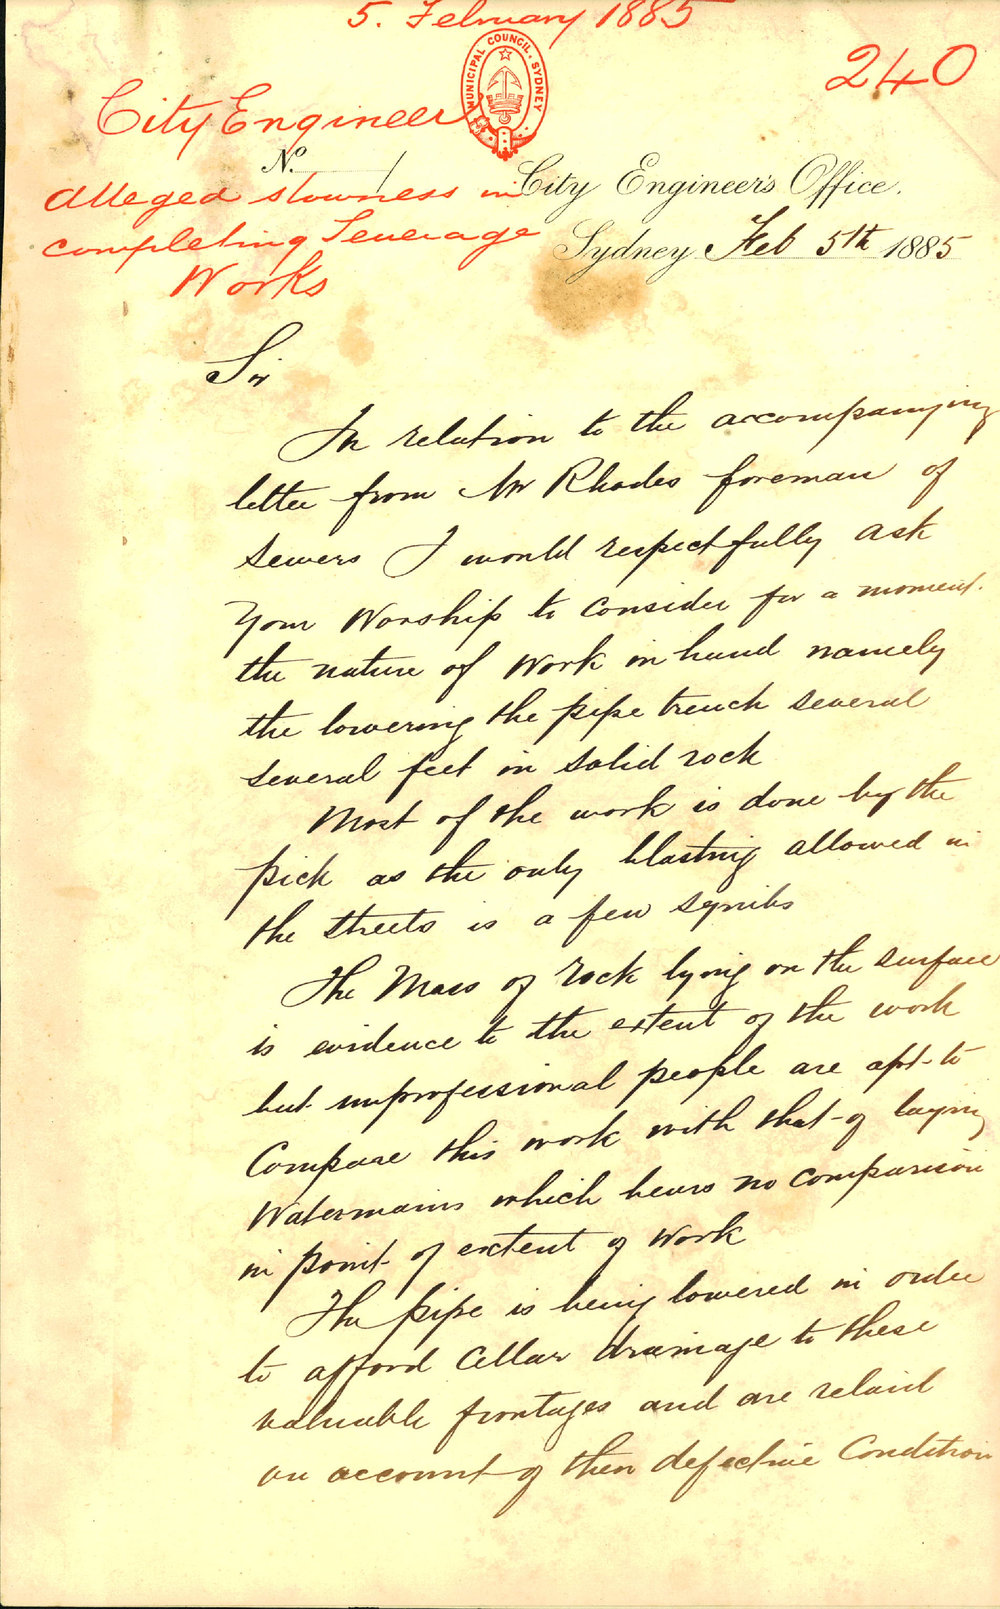 5. February 1885
240
MUNICIPAL COUNCIL. SYDNEY
City Engineer
No.
alleged slowness in
completing Sewerage
Works
City Engineer's Office.
Sydney Feb 5th 1885
Sir
In relation to the accompanying
letter from Mr Rhodes foreman of
Sewers I would respectfully ask
Your Worship to consider for a moment.
the nature of work in hand namely
the lowering the pipe trench several
several feet in solid rock
Most of the work is done by the
pick as the only blasting allowed in
the streets is a few squibs
The Mass of rock lying on the surface
is evidence to the extent of the work
but unprofessional people are apt to
Compare this work with that of laying
Watermains which bears no comparison
in point of extent of work
The pipe is being lowered in order
to afford Cellar drainage to these
valuable frontages and are relaid
on account of their defective Condition